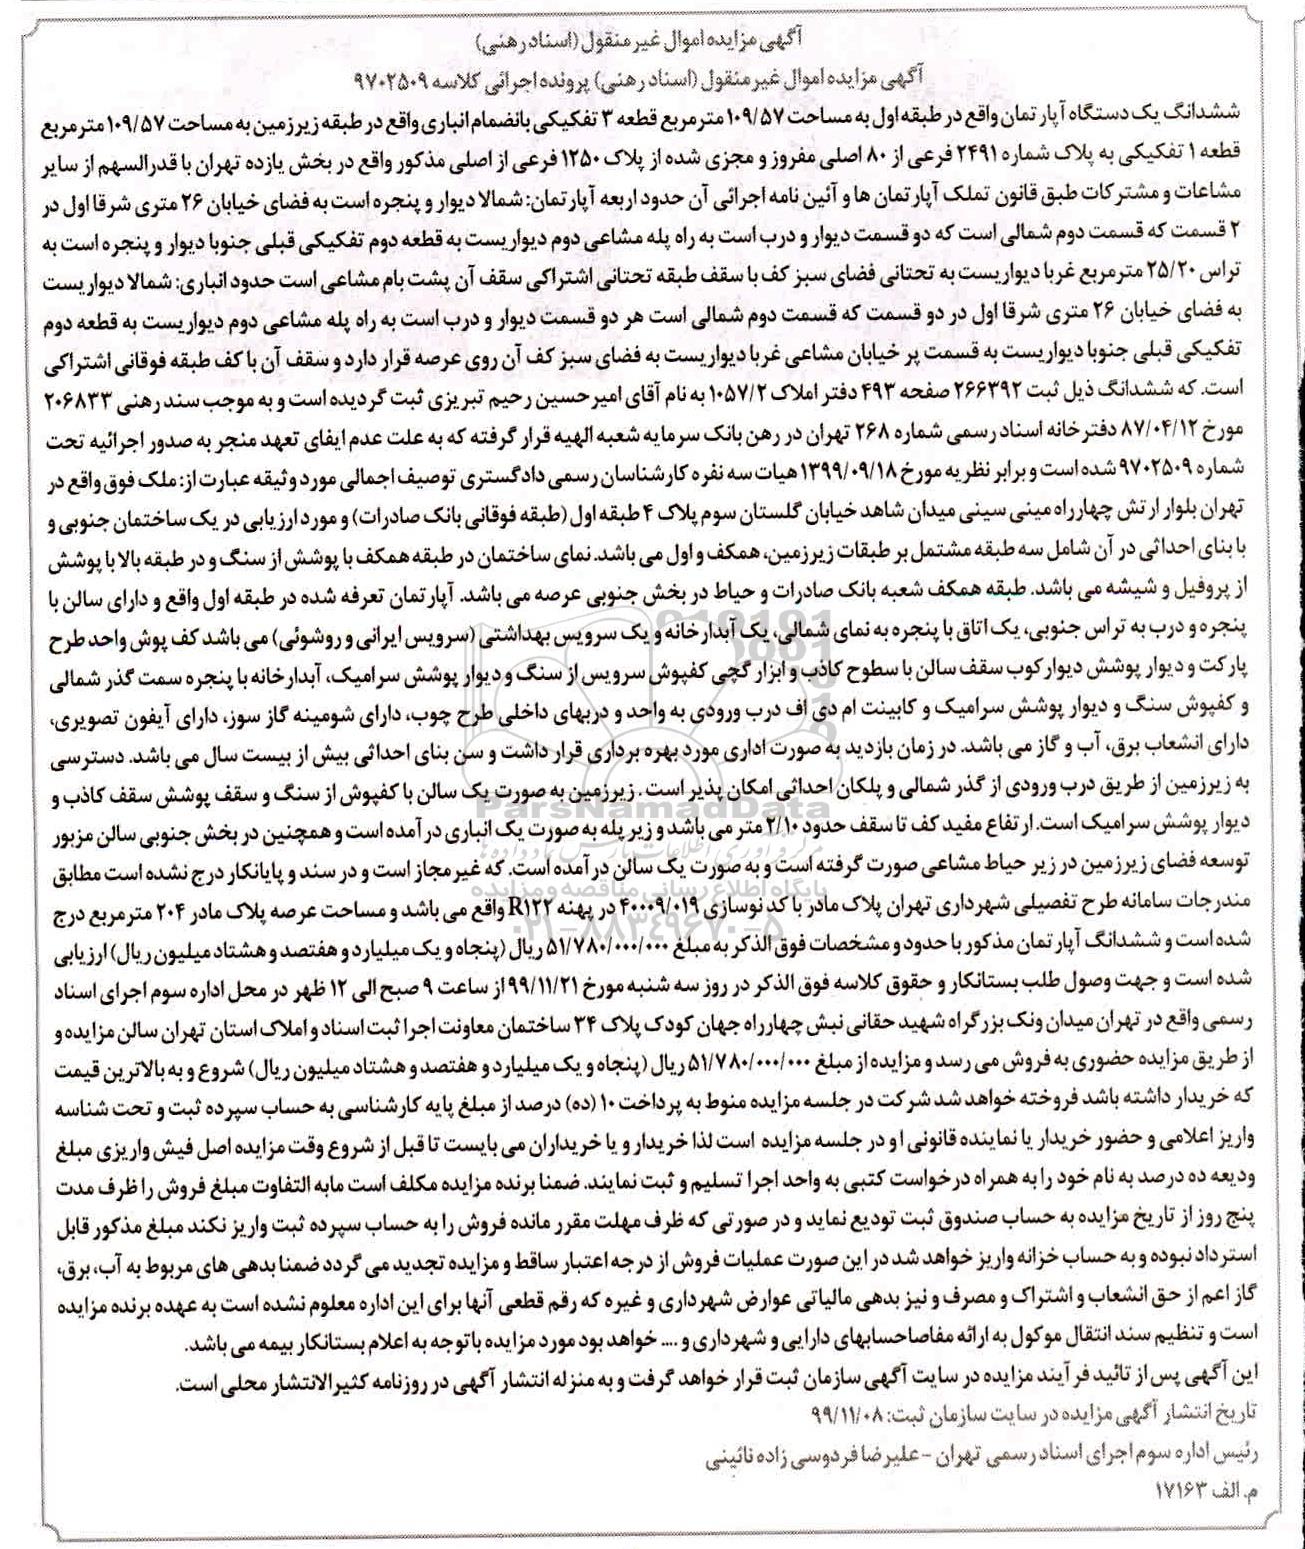 آگهی مزایده اموال غیر منقول (اسناد رهنی)
آگهی مزایده اموال غیر منقول (اسناد رهنی) پرونده اجرائی کلاسه ۹۷۰۲۵۰۹
ششدانگ یک دستگاه آپارتمان واقع در طبقه اول به مساحت ۱۰۹/۵۷ مترمربع قطعه ۳ تفکیکی بانضمام انباری واقع در طبقه زیرزمین به مساحت ۱۰۹/۵۷ مترمربع
قطعه ۱ تفکیکی به پلاک شماره ۲۴۹۱ فرعی از ۸۰ اصلی مفروز و مجزی شده از پلاک ۱۲۵۰ فرعی از اصلی مذکور واقع در بخش یازده تهران با قدرالسهم از سایر
مشاعات و مشترکات طبق قانون تملک آپارتمان ها و آئین نامه اجرائی آن حدود اربعه آپارتمان: شمالا دیوار و پنجره است به فضای خیابان ۲۶ متری شرقا اول در
۲ قسمت که قسمت دوم شمالی است که دو قسمت دیوار و درب است به راه پله مشاعی دوم دیواریست به قطعه دوم تفکیکی قبلی جنوبا دیوار و پنجره است به
تراس ۲۵/۲۰ مترمربع غربا دیواریست به تحتانی فضای سبز کف با سقف طبقه تحتانی اشتراکی سقف آن پشت بام مشاعی است حدود انباری: شمالا دیواریست
به فضای خیابان ۲۶ متری شرقا اول در دو قسمت که قسمت دوم شمالی است هر دو قسمت دیوار و درب است به راه پله مشاعی دوم دیواریست به قطعه دوم
تفکیکی قبلی جنوبا دیواریست به قسمت پر خیابان مشاعی غربا دیواریست به فضای سبز کف آن روی عرصه قرار دارد و سقف آن با کف طبقه فوقانی اشتراکی
است. که ششدانگ ذیل ثبت ۲۶۶۳۹۲ صفحه ۴۹۳ دفتر املاک ۱۰۵۷/۲ به نام آقای امیرحسین رحیم تبریزی ثبت گردیده است و به موجب سند رهنی ۲۰۶۸۳۳
مورخ ۸۷/۰۴/۱۲ دفترخانه اسناد رسمی شماره ۲۶۸ تهران در رهن بانک سرمایه شعبه الهیه قرار گرفته که به علت عدم ایفای تعهد منجر به صدور اجرائیه تحت
شماره ۹۷۰۲۵۰۹ شده است و برابر نظریه مورخ ۱۳۹۹/۰۹/۱۸ هیات سه نفره کارشناسان رسمی دادگستری توصیف اجمالی مورد وثیقه عبارت از: ملک فوق واقع در
تهران بلوار ارتش چهارراه مینی سینی میدان شاهد خیابان گلستان سوم پلاک ۴ طبقه اول (طبقه فوقانی بانک صادرات) و مورد ارزیابی در یک ساختمان جنوبی و
با بنای احداثی در آن شامل سه طبقه مشتمل بر طبقات زیرزمین، همکف و اول می باشد. نمای ساختمان در طبقه همکف با پوشش از سنگ و در طبقه بالا با پوشش
از پروفیل و شیشه می باشد. طبقه همکف شعبه بانک صادرات و حیاط در بخش جنوبی عرصه می باشد. آپارتمان تعرفه شده در طبقه اول واقع و دارای سالن با
پنجره و درب به تراس جنوبی، یک اتاق با پنجره به نمای شمالی، یک آبدارخانه و یک سرویس بهداشتی (سرویس ایرانی و روشوئی) می باشد کف پوش واحد طرح
پارکت و دیوار پوشش دیوارکوب سقف سالن با سطوح کاذب و ابزار گچی کفپوش سرویس از سنگ و دیوار پوشش سرامیک، آبدارخانه با پنجره سمت گذر شمالی
و کفپوش سنگ و دیوار پوشش سرامیک و کابینت ام دی اف درب ورودی به واحد و دربهای داخلی طرح چوب، دارای شومینه گاز سوز، دارای آیفون تصویری،
دارای انشعاب برق، آب و گاز می باشد. در زمان بازدید به صورت اداری مورد بهره برداری قرار داشت و سن بنای احداثی بیش از بیست سال می باشد. دسترسی
به زیرزمین از طریق درب ورودی از گذر شمالی و پلکان احداثی امکان پذیر است. زیرزمین به صورت یک سالن با کفپوش از سنگ و سقف پوشش سقف کاذب و
دیوار پوشش سرامیک است. ارتفاع مفید کف تا سقف حدود ۲/۱۰ متر می باشد و زیر پله به صورت یک انباری در آمده است و همچنین در بخش جنوبی سالن مزبور
توسعه فضای زیرزمین در زیر حیاط مشاعی صورت گرفته است و به صورت یک سالن در آمده است. که غیر مجاز است و در سند و پایانکار درج نشده است مطابق
مندرجات سامانه طرح تفصیلی شهرداری تهران پلاک مادر با کد نوسازی ۴۰۰۰۹/۰۱۹ در پهنه R۱۲۲ واقع می باشد و مساحت عرصه پلاک مادر ۲۰۴ مترمربع درج
شده است و ششدانگ آپارتمان مذکور با حدود و مشخصات فوق الذکر به مبلغ ۵۱/۷۸۰/۰۰۰/۰۰۰ ریال (پنجاه و یک میلیارد و هفتصد و هشتاد میلیون ریال) ارزیابی
شده است و جهت وصول طلب بستانکار و حقوق کلاسه فوق الذکر در روز سه شنبه مورخ ۹۹/۱۱/۲۱ از ساعت ۹ صبح الی ۱۲ ظهر در محل اداره سوم اجرای اسناد
رسمی واقع در تهران میدان ونک بزرگراه شهید حقانی نبش چهارراه جهان کودک پلاک ۳۴ ساختمان معاونت اجرا ثبت اسناد و املاک استان تهران سالن مزایده و
از طریق مزایده حضوری به فروش می رسد و مزایده از مبلغ ۵۱/۷۸۰/۰۰۰/۰۰۰ ریال (پنجاه و یک میلیارد و هفتصد و هشتاد میلیون ریال) شروع و به بالاترین قیمت
که خریدار داشته باشد فروخته خواهد شد شرکت در جلسه مزایده منوط به پرداخت ۱۰ (ده) درصد از مبلغ پایه کارشناسی به حساب سپرده ثبت و تحت شناسه
واریز اعلامی و حضور خریدار یا نماینده قانونی او در جلسه مزایده است لذا خریدار و یا خریداران می بایست تا قبل از شروع وقت مزایده اصل فیش واریزی مبلغ
ودیعه ده درصد به نام خود را به همراه درخواست کتبی به واحد اجرا تسلیم و ثبت نمایند. ضمنا برنده مزایده مکلف است مابه التفاوت مبلغ فروش را ظرف مدت
پنج روز از تاریخ مزایده به حساب صندوق ثبت تودیع نماید و در صورتی که ظرف مهلت مقرر مانده فروش را به حساب سپرده ثبت واریز نکند مبلغ مذکور قابل
استرداد نبوده و به حساب خزانه واریز خواهد شد در این صورت عملیات فروش از درجه اعتبار ساقط و مزایده تجدید می گردد ضمنا بدهی های مربوط به آب، برق،
گاز اعم از حق انشعاب و اشتراک و مصرف و نیز بدهی مالیاتی عوارض شهرداری و غیره که رقم قطعی آنها برای این اداره معلوم نشده است به عهده برنده مزایده
است و تنظیم سند انتقال موکول به ارائه مفاصاحسابهای دارایی و شهرداری و .... خواهد بود مورد مزایده باتوجه به اعلام بستانکار بیمه می باشد.
این آگهی پس از تائید فرآیند مزایده در سایت آگهی سازمان ثبت قرار خواهد گرفت و به منزله انتشار آگهی در روزنامه کثیرالانتشار محلی است.
تاریخ انتشار آگهی مزایده در سایت سازمان ثبت: ۹۹/۱۱/۰۸
رئیس اداره سوم اجرای اسناد رسمی تهران - علیرضا فردوسی زاده نائینی
م. الف ۱۷۱۶۳
ParsNamadData
پایگاه اطلاع رسانی مناقصه و مزایده
۰۲۱-۸۸۳۴۹۶۷۰-۵